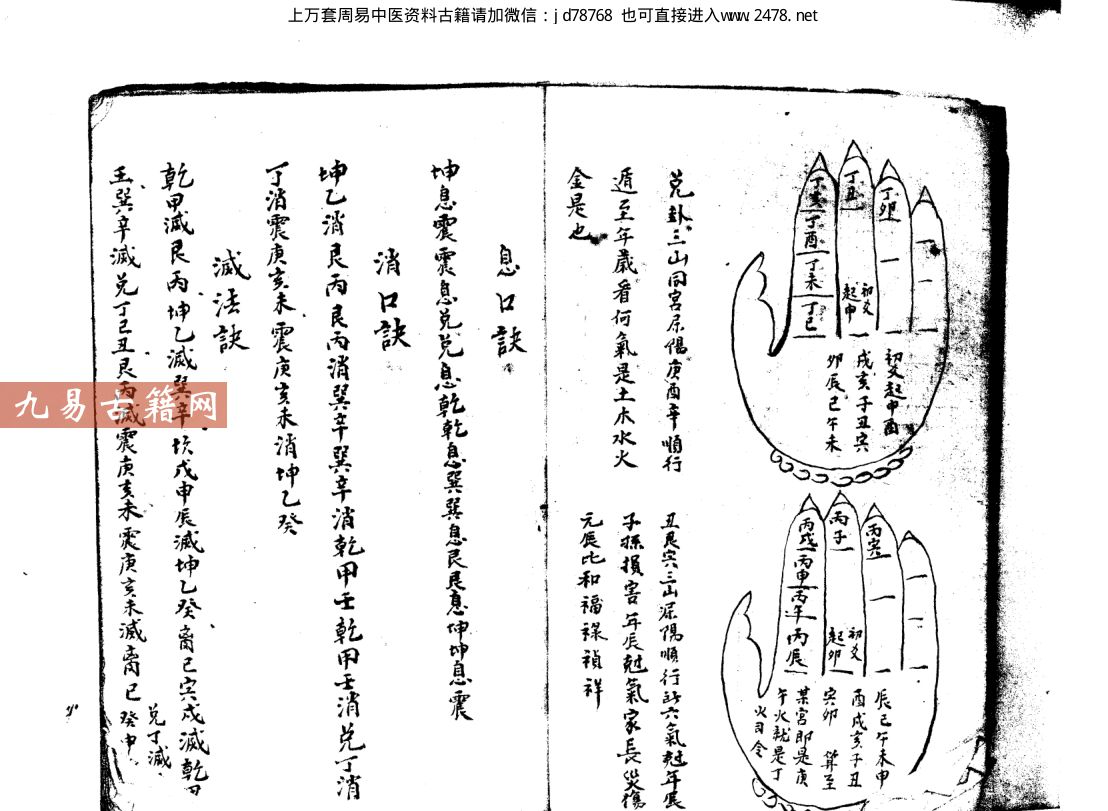 上万套周易中医资料古籍请加微信：jd78768 也可直接进入www.2478.net
丁亥
丁酉
丁未
丁巳
丁丑
丁卯
初爻
起申
初爻起申酉
戌亥子丑寅
卯辰巳午未
兌卦三山同宮屬陽庚酉辛順行
遁至年歲看何氣是土木水火
金是也
丙戌
丙申
丙午
丙辰
丙子
丙寅
初爻
起卯
辰巳午未申
酉戌亥子丑
寅卯 算至
某宮即是庚
午火就是丁
火司令
丑艮寅三山屬陽順行 六氣尅年辰
子孫損害年辰尅氣家長災傷
元辰比和福祿禎祥
息口訣
坤息震震息兌兌息乾乾息巽巽息艮艮息坤坤息震
消口訣
坤乙消艮丙艮丙消巽辛巽辛消乾甲壬乾甲壬消兌丁消
丁消震庚亥未震庚亥未消坤乙癸
滅法訣
乾甲滅艮丙坤乙滅巽辛坎戊申辰滅坤乙癸离己寅戌滅乾甲
壬巽辛滅兌丁己丑艮丙滅震庚亥未震庚亥未滅离己
兌丁滅
癸申
九易古籍网